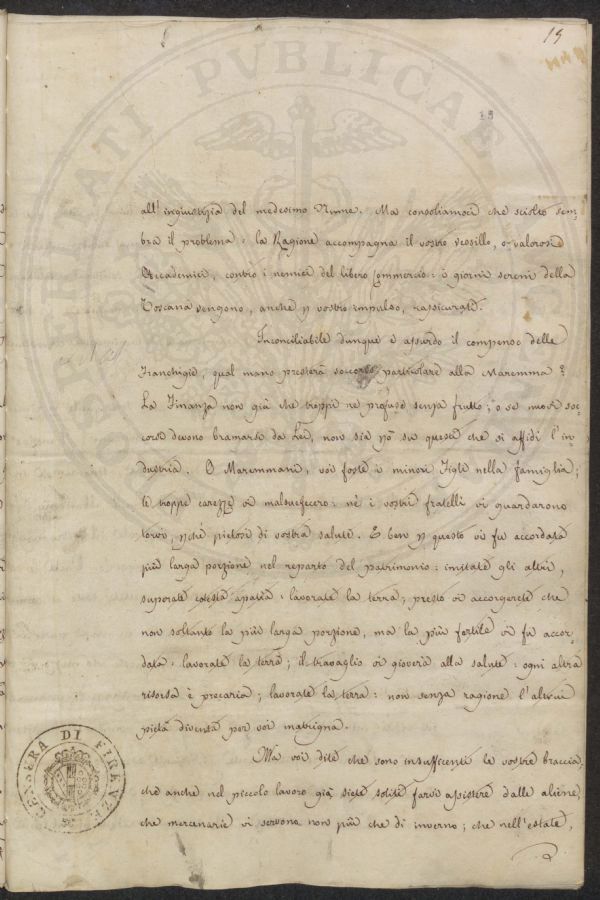 15
all' ingiustizia del medesimo Nume. Ma consoliamoci che sciolto sem-
bra il problema: la Ragione accompagna il vostro vessillo, o valorosi
Accademici, contro i nemici del libero Commercio: i giorni sereni della
Toscana vengono, anche p vostro impulso, rassicurati.
Inconciliabile dunque e assurdo il compenso delle
Franchigie, qual mano presterà soccorso particolare alla Maremma?
La Finanza non già che troppi ne profuse senza frutto; o se nuovi soc-
corsi devono bramarsi da Lei, non sia pò su questi che si affidi l'in-
dustria. O Maremmani, voi foste i minori Figli nella famiglia;
le troppe carezze vi malsuefecero: nè i vostri fratelli vi guardarono
torvi, pchè pietosi di vostra salute. E ben p questo vi fu accordata
più larga porzione nel reparto del patrimonio: imitate gli altri,
superate cotesta apatia: lavorate la terra; presto vi accorgerete che
non soltanto la più larga porzione, ma la più fertile vi fu accor-
data: lavorate la terra; il travaglio vi gioverà alla salute: ogni altra
risorsa è precaria; lavorate la terra: non senza ragione l'altrui
pietà diventa per voi matrigna.
Ma voi dite che sono insufficenti le vostre braccia,
che anche nel piccolo lavoro già siete soliti farvi assistere dalle aliene,
che mercenarie vi servono non più che di inverno; che nell'estate,
PUBLICAE
UTILITATI
CENSURA DI FIRENZE